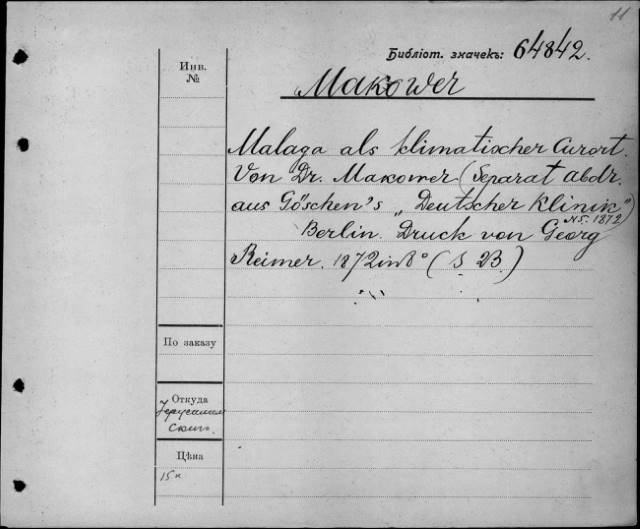 11
Библіот. значекъ: 64842.
Инв.
№
Makower
Malaga als klimatischer Curort.
Von Dr. Makower (Separat abdr.
aus Göschen's „Deutscher Klinik")
N 5. 1872
Berlin. Druck von Georg
Reimer. 1872 in 8° (S 23.)
По заказу
Откуда
Цѣна
15к